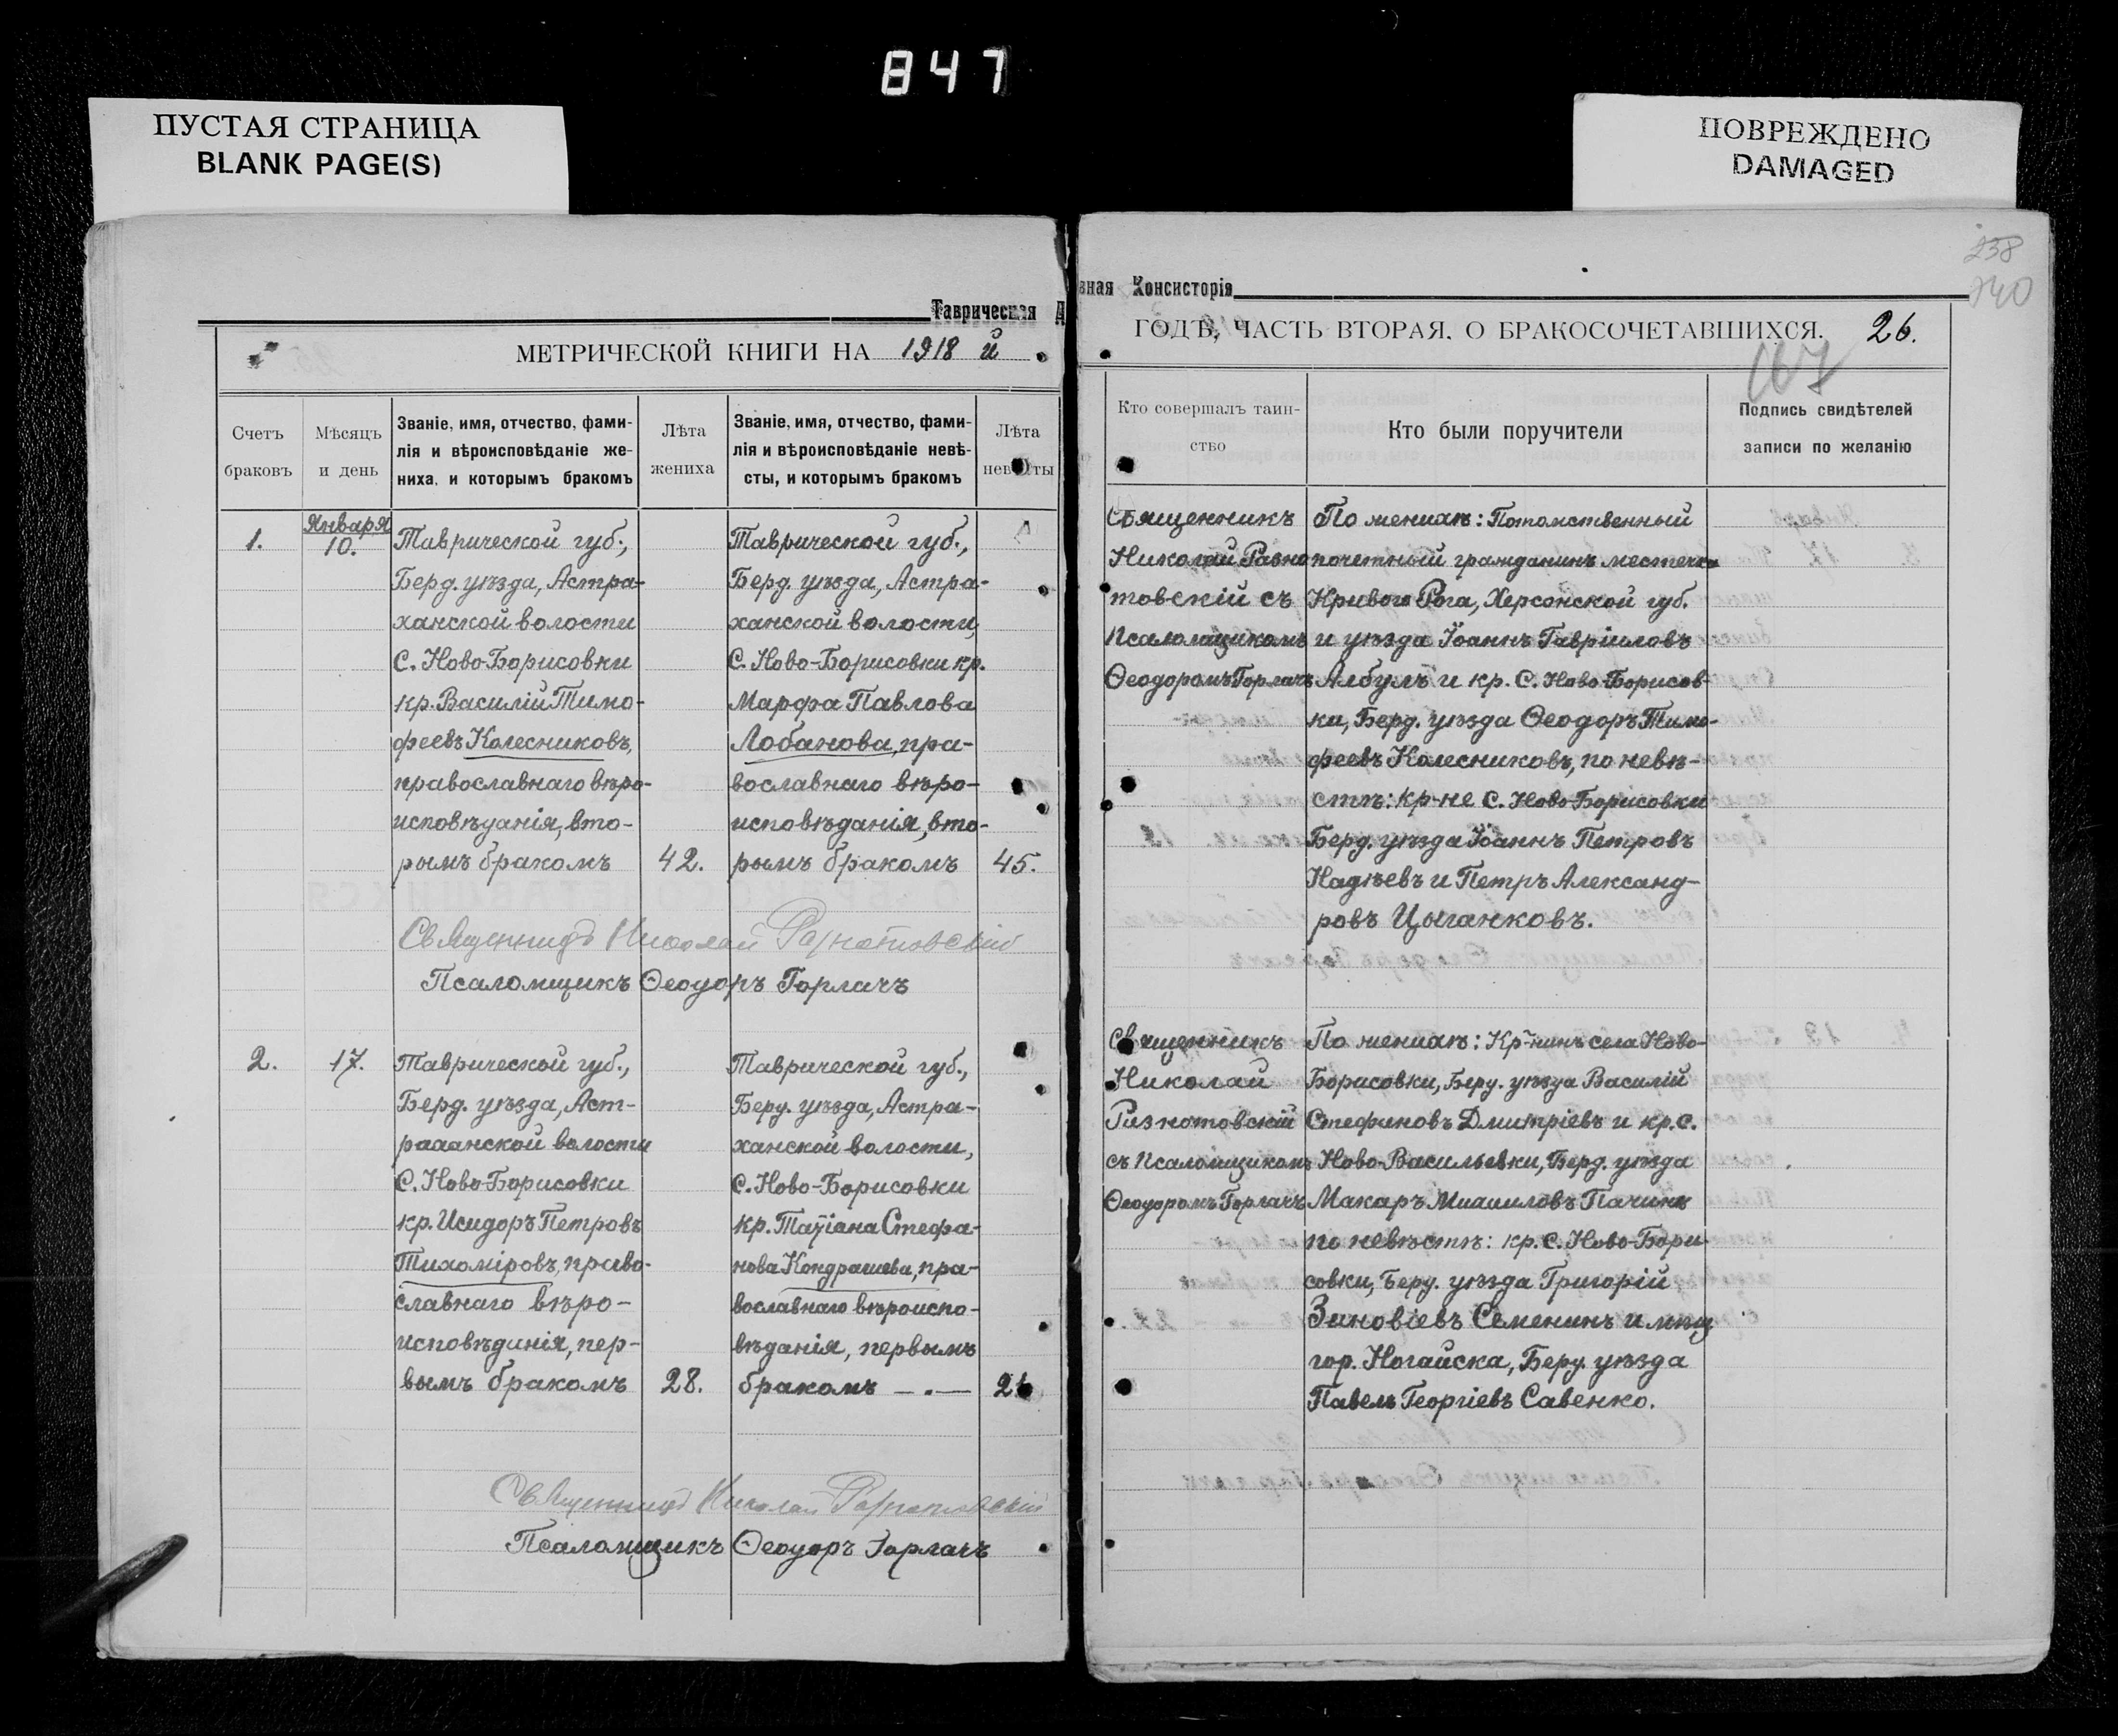 847
ПУСТАЯ СТРАНИЦА
BLANK PAGE(S)
ПОВРЕЖДЕНО
DAMAGED
238
240
Таврическая Д
МЕТРИЧЕСКОЙ КНИГИ НА 1918 й
Счетъ
браковъ
Мѣсяцъ
и день
Званіе, имя, отчество, фами-
лія и вѣроисповѣданіе же-
ниха, и которымъ бракомъ
Лѣта
жениха
Званіе, имя, отчество, фами-
лія и вѣроисповѣданіе невѣ-
сты, и которымъ бракомъ
Лѣта
1.
Января
10.
Таврической губ.,
Берд. уѣзда, Астра-
ханской волости
С. Ново-Борисовки
кр. Василій Тимо-
феевъ Колесниковъ,
православнаго вѣро-
исповѣданія, вто-
рымъ бракомъ
42.
Таврической губ.,
Берд. уѣзда, Астра-
ханской волости,
С. Ново-Борисовки кр.
Марфа Павлова
Лобанова, пра-
вославнаго вѣро-
исповѣданія, вто-
рымъ бракомъ
45.
Священникъ Николай
Псаломщикъ Ѳеодоръ Горлачъ
2.
17.
Таврической губ.,
Берд. уѣзда, Аст-
раханской волости
С. Ново-Борисовки
кр. Исидоръ Петровъ
Тихоміровъ, право-
славнаго вѣро-
исповѣданія, пер-
вымъ бракомъ
28.
Таврической губ.,
Берд. уѣзда, Астра-
ханской волости,
С. Ново-Борисовки
кр. Татіана Стефа-
нова Кондрашева, пра-
вославнаго вѣроиспо-
вѣданія, первымъ
бракомъ — . —
Священникъ Николай
Псаломщикъ Ѳеодоръ Горлачъ
вная Консисторія
ГОДЪ, ЧАСТЬ ВТОРАЯ, О БРАКОСОЧЕТАВШИХСЯ. 26.
167
Кто совершалъ таин-
ство
Кто были поручители
Подпись свидѣтелей
записи по желанію
Священникъ
Николай Разно
товскій съ
Псаломщикомъ
Ѳеодоромъ Горлачъ
По женихѣ: Потомственный
почетный гражданинъ местечка
Кривого Рога, Херсонской губ.
и уѣзда Іоаннъ Гавріиловъ
Албулъ и кр. С. Ново-Борисов-
ки, Берд. уѣзда Ѳеодоръ Тимо-
феевъ Колесниковъ, по невѣ-
стѣ: кр-не С. Ново-Борисовки
Берд. уѣзда Іоаннъ Петровъ
Надѣевъ и Петръ Александ-
ровъ Цыганковъ.
Священникъ
Николай
Разнотовскій
съ Псаломщикомъ
Ѳеодоромъ Горлачъ
По женихѣ: Кр-нинъ села Ново-
Борисовки, Берд. уѣзда Василій
Стефановъ Дмитріевъ и кр. С.
Ново-Васильевки, Берд. уѣзда
Макаръ Михаиловъ Пачинъ
по невѣстѣ: кр. С. Ново-Бори-
совки, Берд. уѣзда Григорій
Зиновіевъ Семенинъ и мѣщ
гор. Ногайска, Берд. уѣзда
Павелъ Георгіевъ Савенко.